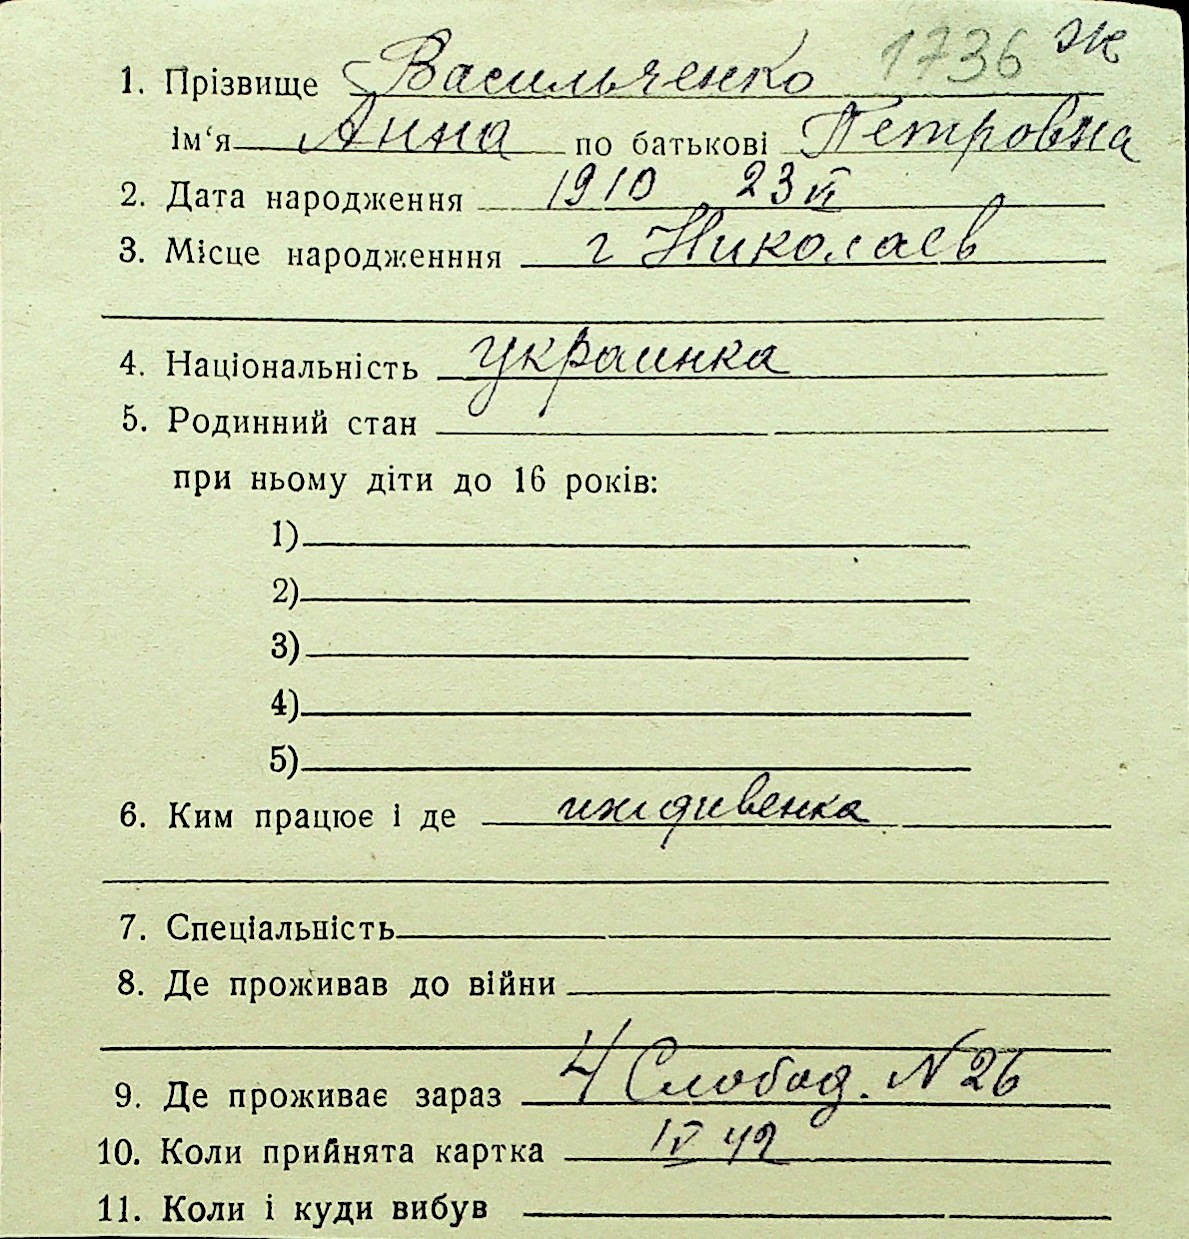 1. Прізвище Васильченко 1736 Ж
ім‘я Анна по батькові Петровна
2. Дата народження 1910 23 VI
3. Місце народженння г Николаев
4. Національність украинка
5. Родинний стан
при ньому діти до 16 років:
1)
2)
3)
4)
5)
6. Ким працює і де иждивенка
7. Спеціальність
8. Де проживав до війни
9. Де проживає зараз 4 Слобод. N 26
10. Коли прийнята картка IV 42
11. Коли і куди вибув